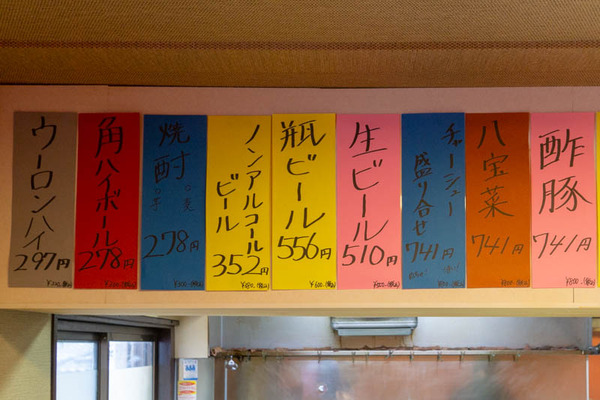 酢豚
741円
八宝菜
741円
チャーシュー
盛り合せ
741円
生ビール
510円
瓶ビール
556円
¥600.(税込)
ノンアルコール
ビール
352円
焼酎
278円
角ハイボール
278円
ウーロンハイ
297円